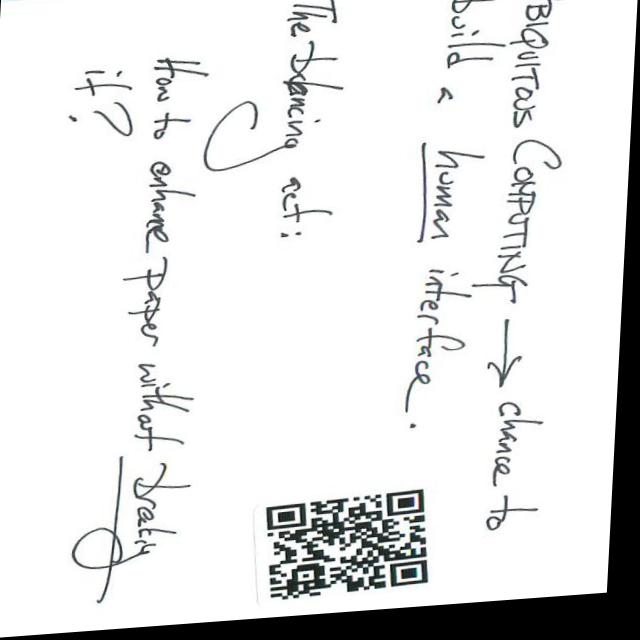 BIQUITOUS COMPUTING → chance to
build a human interface.
The balancing act:
How to enhance paper without
it?